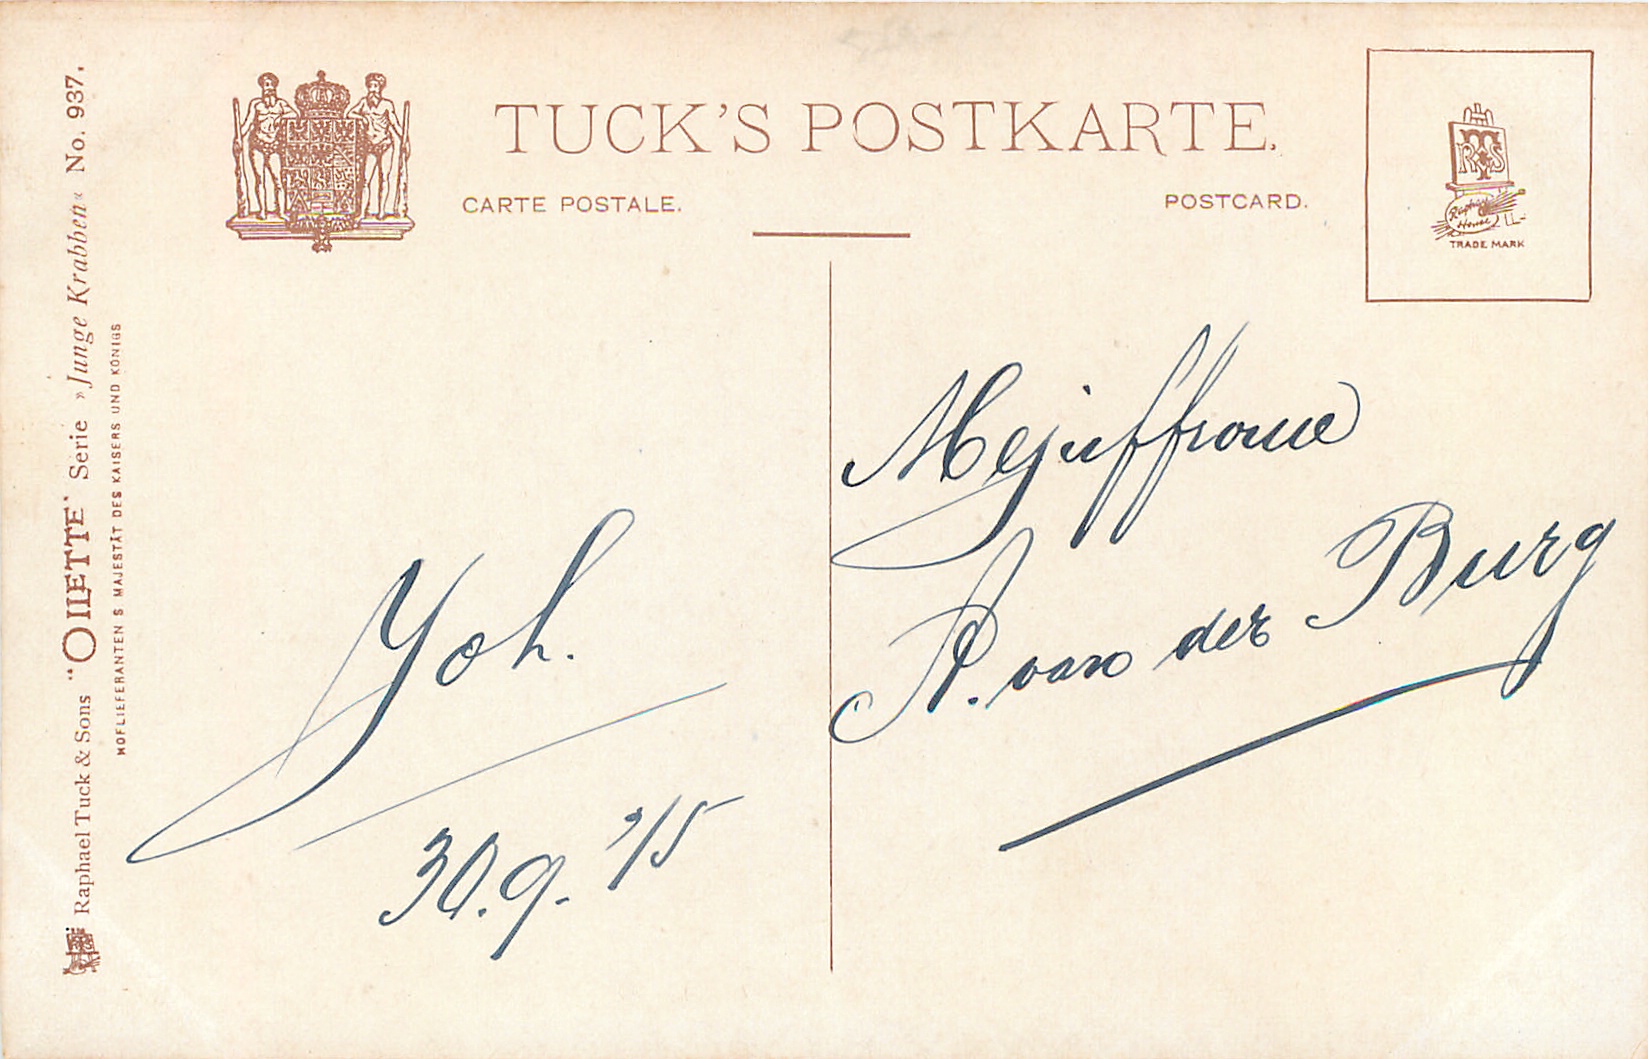 TUCK'S POSTKARTE.
CARTE POSTALE.
POSTCARD.
R T S
Raphael
House
TRADE MARK
Raphael Tuck & Sons "OILETTE" Serie »Junge Krabben« No. 937.
HOFLIEFERANTEN S MAJESTÄT DES KAISERS UND KÖNIGS
Yoh.
30.9.'15
Mejuffrouw
A. van der Burg